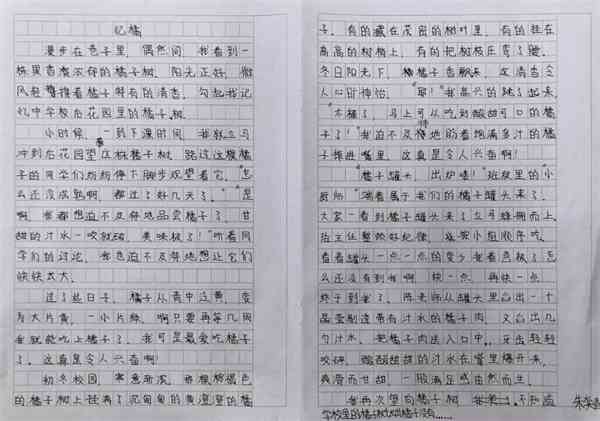 忆橘
漫步在巷子里，偶然间，我看到一
株果香浓郁的橘子树，阳光正好，微
风轻拂着橘子特有的清香，勾起我记
忆中学校后花园里的橘子树。
小时候，一到下课时间，我就立马
冲到后花园望这株橘子树，路过这棵橘
子的同学们纷纷停下脚步观望着它。"怎
么还没成熟啊，都过了好几天了。""是
啊，我都想迫不及待地品尝橘子了，甘
甜的汁水一咬就破，美味极了！"听着同
学们的讨论，我也迫不及待地想让它们
快快长大。
过了些日子，橘子从青中泛黄，变
为大片黄，一小片绿，啊只要再等几周
我就能吃上橘子了。我可是最爱吃橘子
了，这真是令人兴奋啊！
初冬校园，寒意渐浓，那棵褐色
的橘子树上挂满了沉甸甸的黄澄澄的橘
子，有的藏在茂密的树叶里，有的挂在
高高的树梢上，有的把树枝压弯了腰。
冬日阳光下，橘子香飘来，这清香令
人心旷神怡。"耶！"我高兴的跳了起来，
"太棒了，马上可以吃到酸甜可口的橘
子了！"我迫不及待地的看饱满多汁的橘
子摔进嘴里，这真是令人兴奋啊！
"橘子罐头，出炉喽！"班级里的小
厨师"端着属于我们的橘子罐头来了。
大家一看到橘子罐头来了立马蜂拥而上，
班主任整顿好纪律，按照小组顺序吃，
看着罐头一点一点的变少我着急极了怎
么还没有到我啊，快一点，再快一点。
终于到我了，陈老师从罐头里舀出一个
晶莹剔透带有汁水的橘子肉，又舀出几
勺汁水，把橘子肉送入口中，牙齿轻轻
咬碎，酸酸甜甜的汁水在嘴里爆开来，
爽滑而甘甜，一股满足感油然而生。
我再次望向橘子树
学校里的橘子树